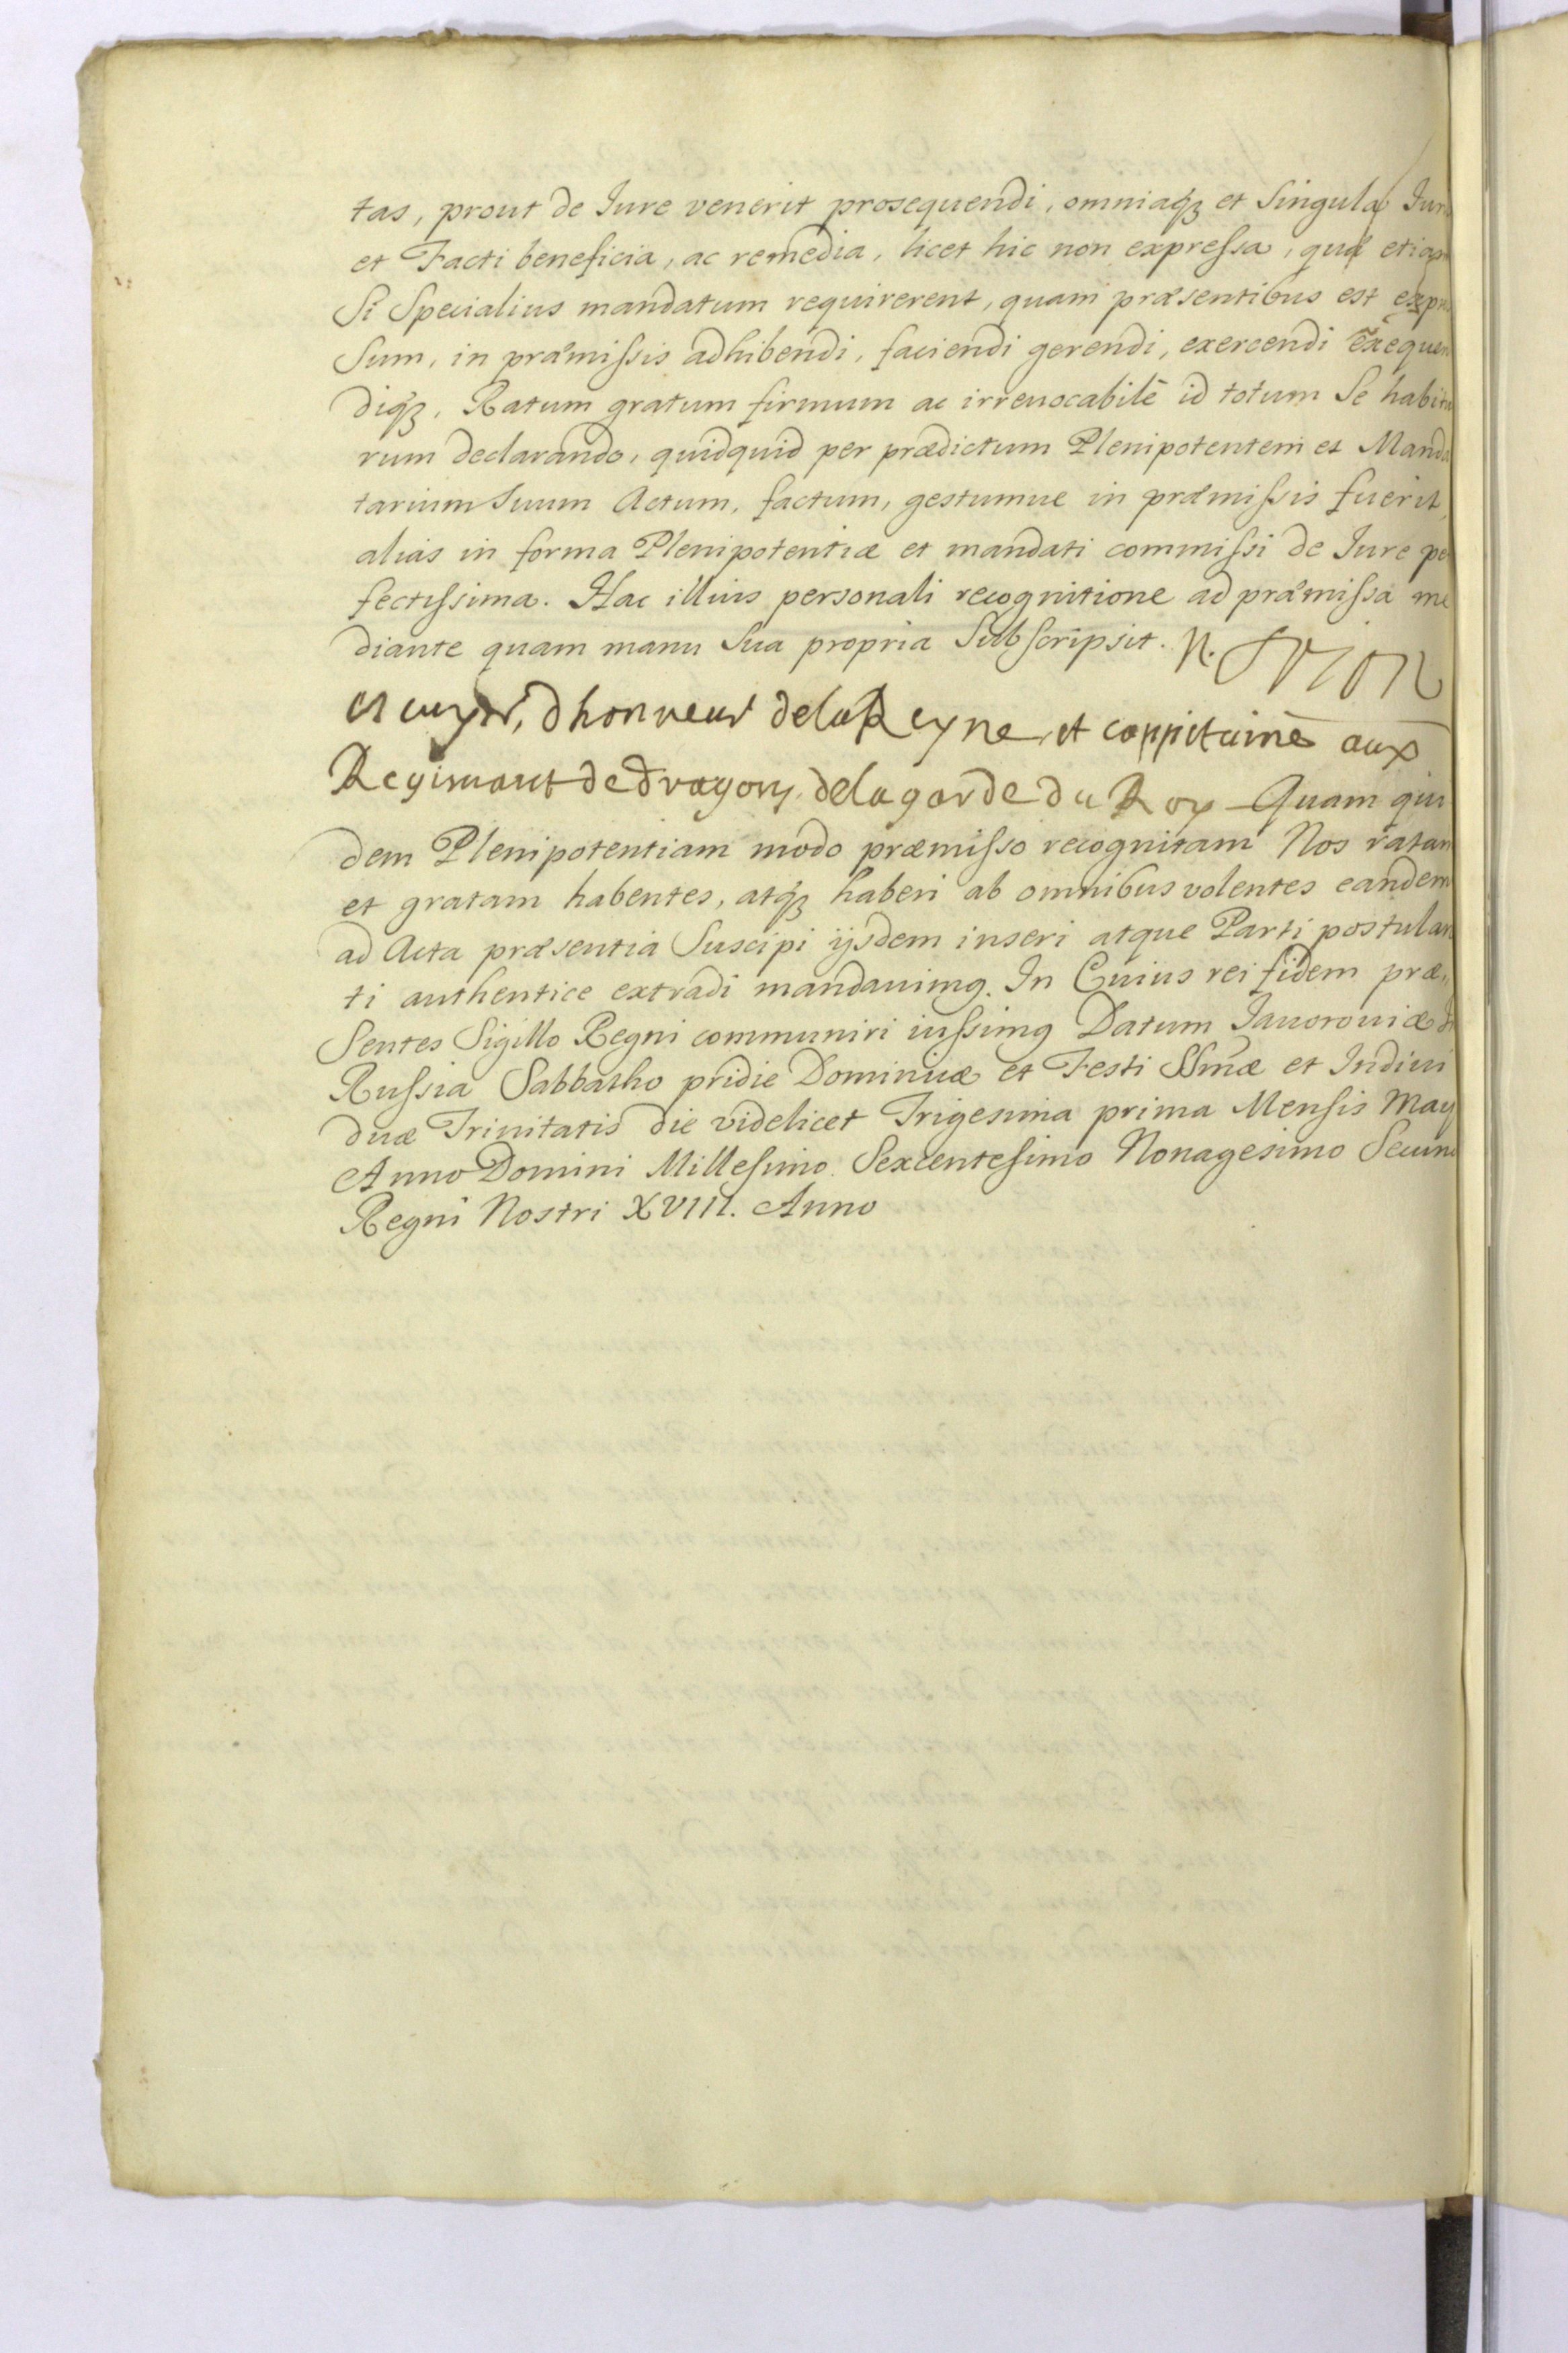 tas, prout de Iure venerit prosequendi, omniaq3 et Singula Iuris
et Facti beneficia, ac remedia, licet hic non expressa, quæ etiam
Si Specialius mandatum requirerent, quam præsentibus est expres
Sum, in præmissis adhibendi, faciendi gerendi, exercendi exequen
diq3. Ratum gratum firmum ac irreuocabile id totum Se habitu
rum declarando, quidquid per prædictum Plenipotentem et Manda
tarium Suum Actum, factum, gestumue in præmissis fuerit,
alias in forma Plenipotentiæ et mandati commissi de Iure per
fectissima. Hac illius personali recognitione ad præmissa me
diante quam manu Sua propria Subscripsit. N.
dhonneur de la Reyne et cappitaine aux
Regimant de dragons de la garde du Roy Quam qui
dem Plenipotentiam modo præmisso recognitam Nos ratam
et gratam habentes, atq3 haberi ab omnibus volentes eandem
ad Acta præsentia Suscipi ijsdem inseri atque Parti postulan
ti authentice extradi mandauimg. In Cuius rei fidem præ
Sentes Sigillo Regni communiri iussimg Datum Iauorouiæ in
Russia Sabbatho pridie Dominicæ et Festi SSmæ et Indiui
duæ Trinitatis die videlicet Trigesima prima Mensis May
Anno Domini Millesimo Sexcentesimo Nonagesimo Secun
Regni Nostri XVIII. Anno